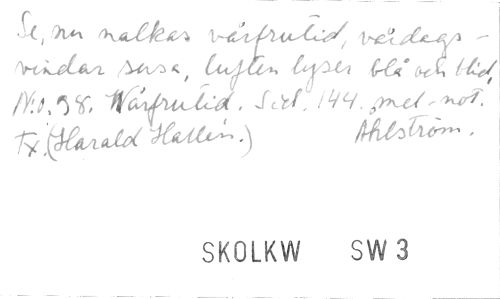 Se, nu nalkas vårfrutid, vårdags-
vindar susa, luften lyser blå och blid,
N:o. 98. Vårfrutid. Sid. 144. mel.-not.
Tx. (Harald Hallén.) Ahlström.
SKOLKW SW 3